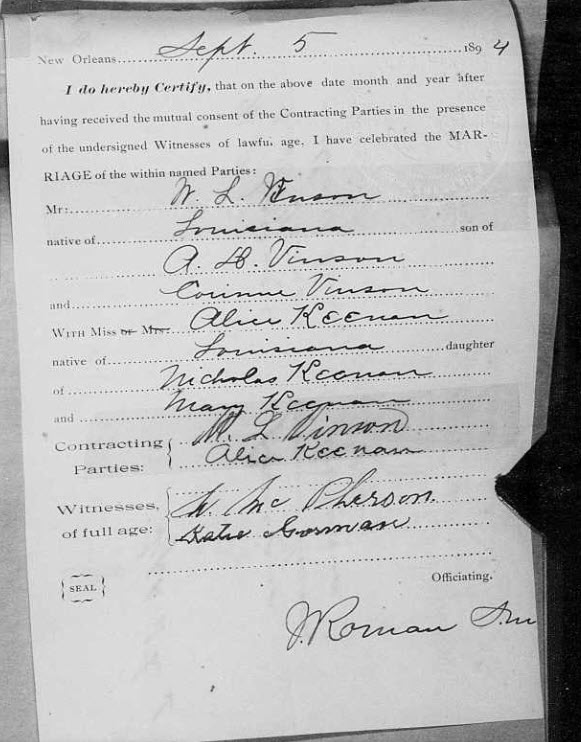 New Orleans Sept. 5 1894
I do hereby Certify, that on the above date month and year after
having received the mutual consent of the Contracting Parties in the presence
of the undersigned Witnesses of lawfu. age, I have celebrated the MAR-
RIAGE of the within named Parties:
Mr: W. L. Vinson
native of Louisiana son of
A. H. Vinson
and Corinne Vinson
WITH Miss or Mrs. Alice Keenan
native of Louisiana daughter
of Nicholas Keenan
and Mary Keenan
Contracting W. L. Vinson
Parties: Alice Keenan
Witnesses, Mc Pherson
of full age: Katie Gorman
SEAL
Officiating.
J. Roman